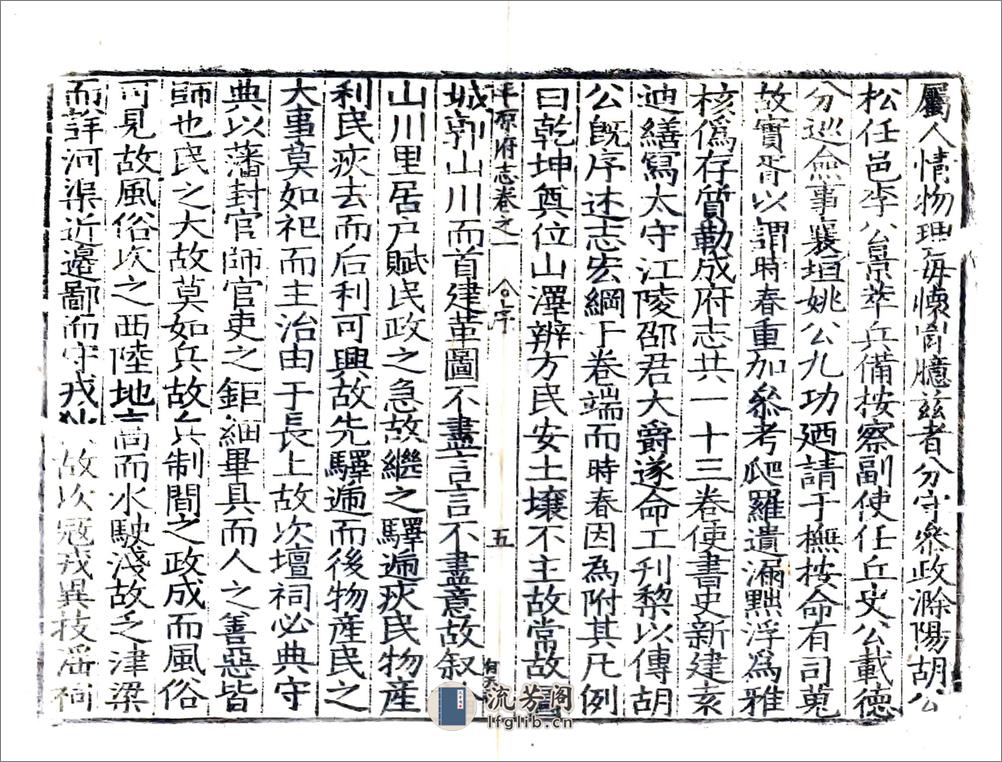 屬人情物理每懷胷臆兹者分守叅政滁陽胡公
松任邑李公景萃兵備按察副使任丘史公載德
分巡僉事襄垣姚公九功廼請于撫按命有司蒐
故實胥以謂時春重加叅考爬羅遺漏黜浮為雅
核偽存質勒成府志共一十三卷使書史新建袁
迪繕寫太守江陵邵君大爵遂命工刊棃以傳胡
公既序述志宏綱于卷端而時春因為附其凡例
曰乾坤奠位山澤辨方民安土壤不主故常故
城郭山川而首建革圖不盡言言不盡意故叙
平凉府志卷之一
五
山川里居戸賦民政之急故繼之驛逓疾民物產
利民疾去而后利可興故先驛逓而後物產民之
大事莫如祀而主治由于長上故次壇祠必典守
典以藩封官師官吏之鉅細畢具而人之善惡皆
師也民之大故莫如兵故兵制間之政成而風俗
可見故風俗次之西陸地高而水駛淺故乏津梁
而詳河渠近邊鄙而守戎故次寇戎異技
流芳阁
lfglib.cn